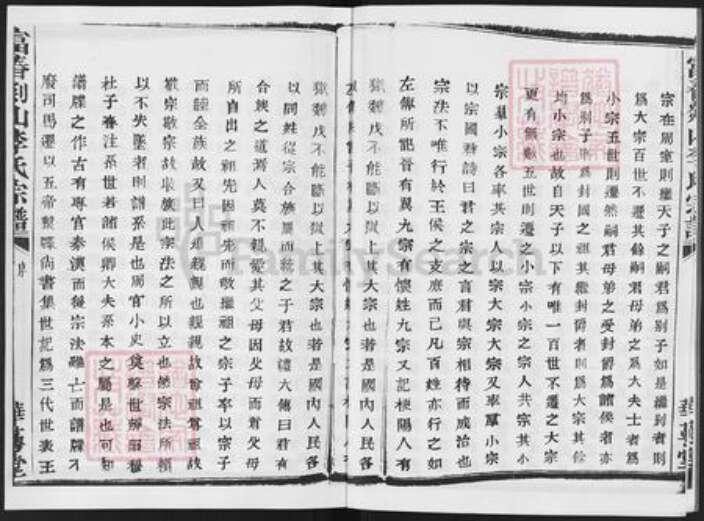 宗在周室則繼天子之嗣君爲別子如是繼別者則
爲大宗百世不遷其餘嗣君母弟之爲大夫士者爲
小宗五世則遷然嗣君母弟之受封爵爲諸侯者亦
爲別子於封國之祖其繼封爵者則爲大宗其餘
均小宗也故自天子以下有唯一百世不遷之大宗
更有無數五世則遷之小宗小宗之人共宗其小
宗羣小宗各率其宗人以宗大宗大宗又率羣小宗
以宗國君詩曰君之宗之言君與宗相待而成治也
宗法不唯行於王侯之支庶而已凡百姓亦行之如
左傳所記晉有翼九宗有懷姓九宗又記梗陽人有
獄魏戊不能斷以獄上其大宗也者是國內人民各
獄魏戊不能斷以獄上其大宗也者是國內人民各
以同姓從宗合族屬而統之于君故禮大傳曰君有
合族之道焉人莫不親愛其父母因父母而尊父母
所自出之祖先因祖先而敬繼祖之宗子率以宗子
而睦全族故又曰人道親親也親親故尊祖尊祖故
敬宗敬宗故收族此宗法之所以立也然宗法所賴
以不失墜者則譜系是也周官小史奠繫世辨昭穆
杜子春注系世若諸侯卿大夫系本之屬是也可知
譜牒之作古有專官秦漢而後宗法雖亡而譜牒不
廢司馬遷以五帝繫牒尚書集世記爲三代世表王
富春剡山李氏宗譜
序
華萼堂
FamilySearch